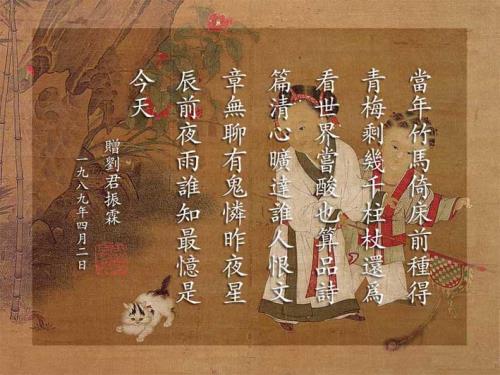 當年竹馬倚床前種得
青梅剩幾千柱杖還為
看世界嘗酸也算品詩
篇清心曠達誰人恨文
章無聊有鬼憐昨夜星
辰前夜雨誰知最憶是
今天
贈劉君振霖
一九八九年四月二日